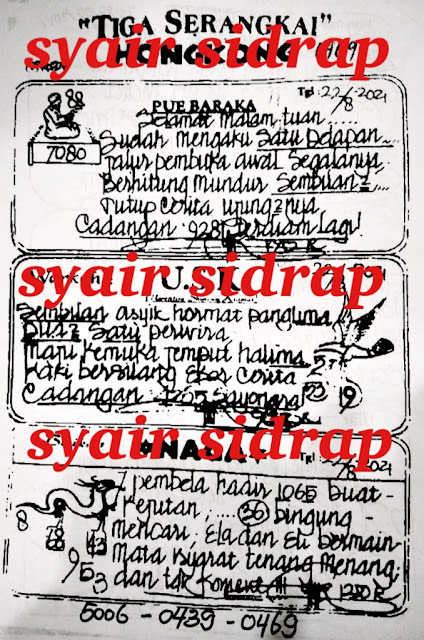 "TIGA SERANGKAI"
syair sidrap
HONGKONG
PUE BARAKA
Tgl: 22/8 - 2021
88
Selamat malam tuan .....
7080
Sudah mengaku satu delapan
jalur pembuka awal segalanya
Berhitung mundur Sembilan 2 ....
Tutup cerita ujung2nya
Cadangan 928 terdiam lagi!
syair sidrap
Sembilan asyik hormat panglima
Dua2 Satu perwira
Maju kemuka jemput halima
Kaki bersilang ekor cerita
Cadangan 1205 Sayonara
19
syair sidrap
NAGA
Tgl: 22/8-2021
7 pembela hadir 1065 buat-
keputan, .... 36 bingung -
8
mencari, Ela dan Eti bermain
mata isyarat tenang menang
953
dan tak koment!!!
5006 - 0439 - 0469